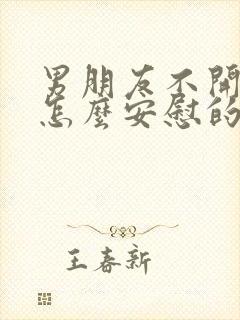 男朋友不開
怎麼安慰的
王春新